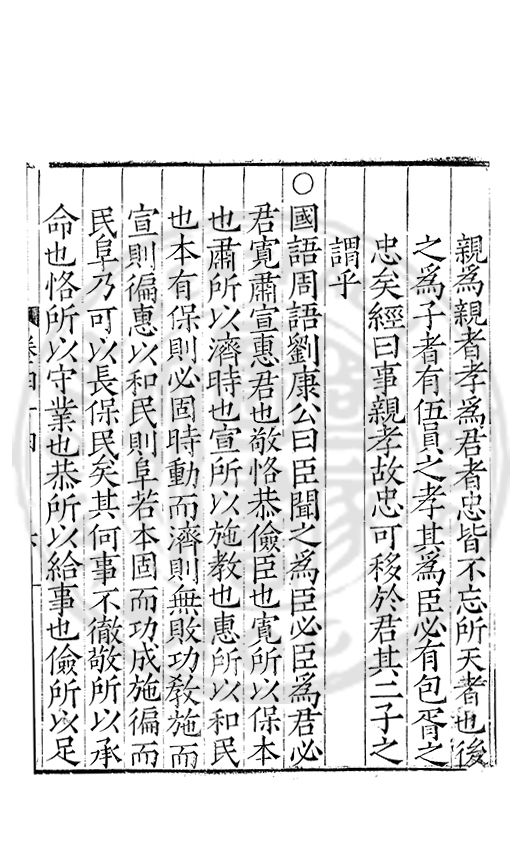 親爲親者孝爲君者忠皆不忘所天者也後
之爲子者有伍員之孝其爲臣必有包胥之
忠矣經曰事親孝故忠可移於君其二子之
謂乎
○國語周語劉康公曰臣聞之爲臣必臣爲君必
君寬肅宣惠君也敬恪恭儉臣也寬所以保本
也肅所以濟時也宣所以施教也惠所以和民
也本有保則必固時動而濟則無敗功教施而
宣則徧惠以和民則阜若本固而功成施徧而
民阜乃可以長保民矣其何事不徹敬所以承
命也恪所以守業也恭所以給事也儉所以足
卷四十四 六